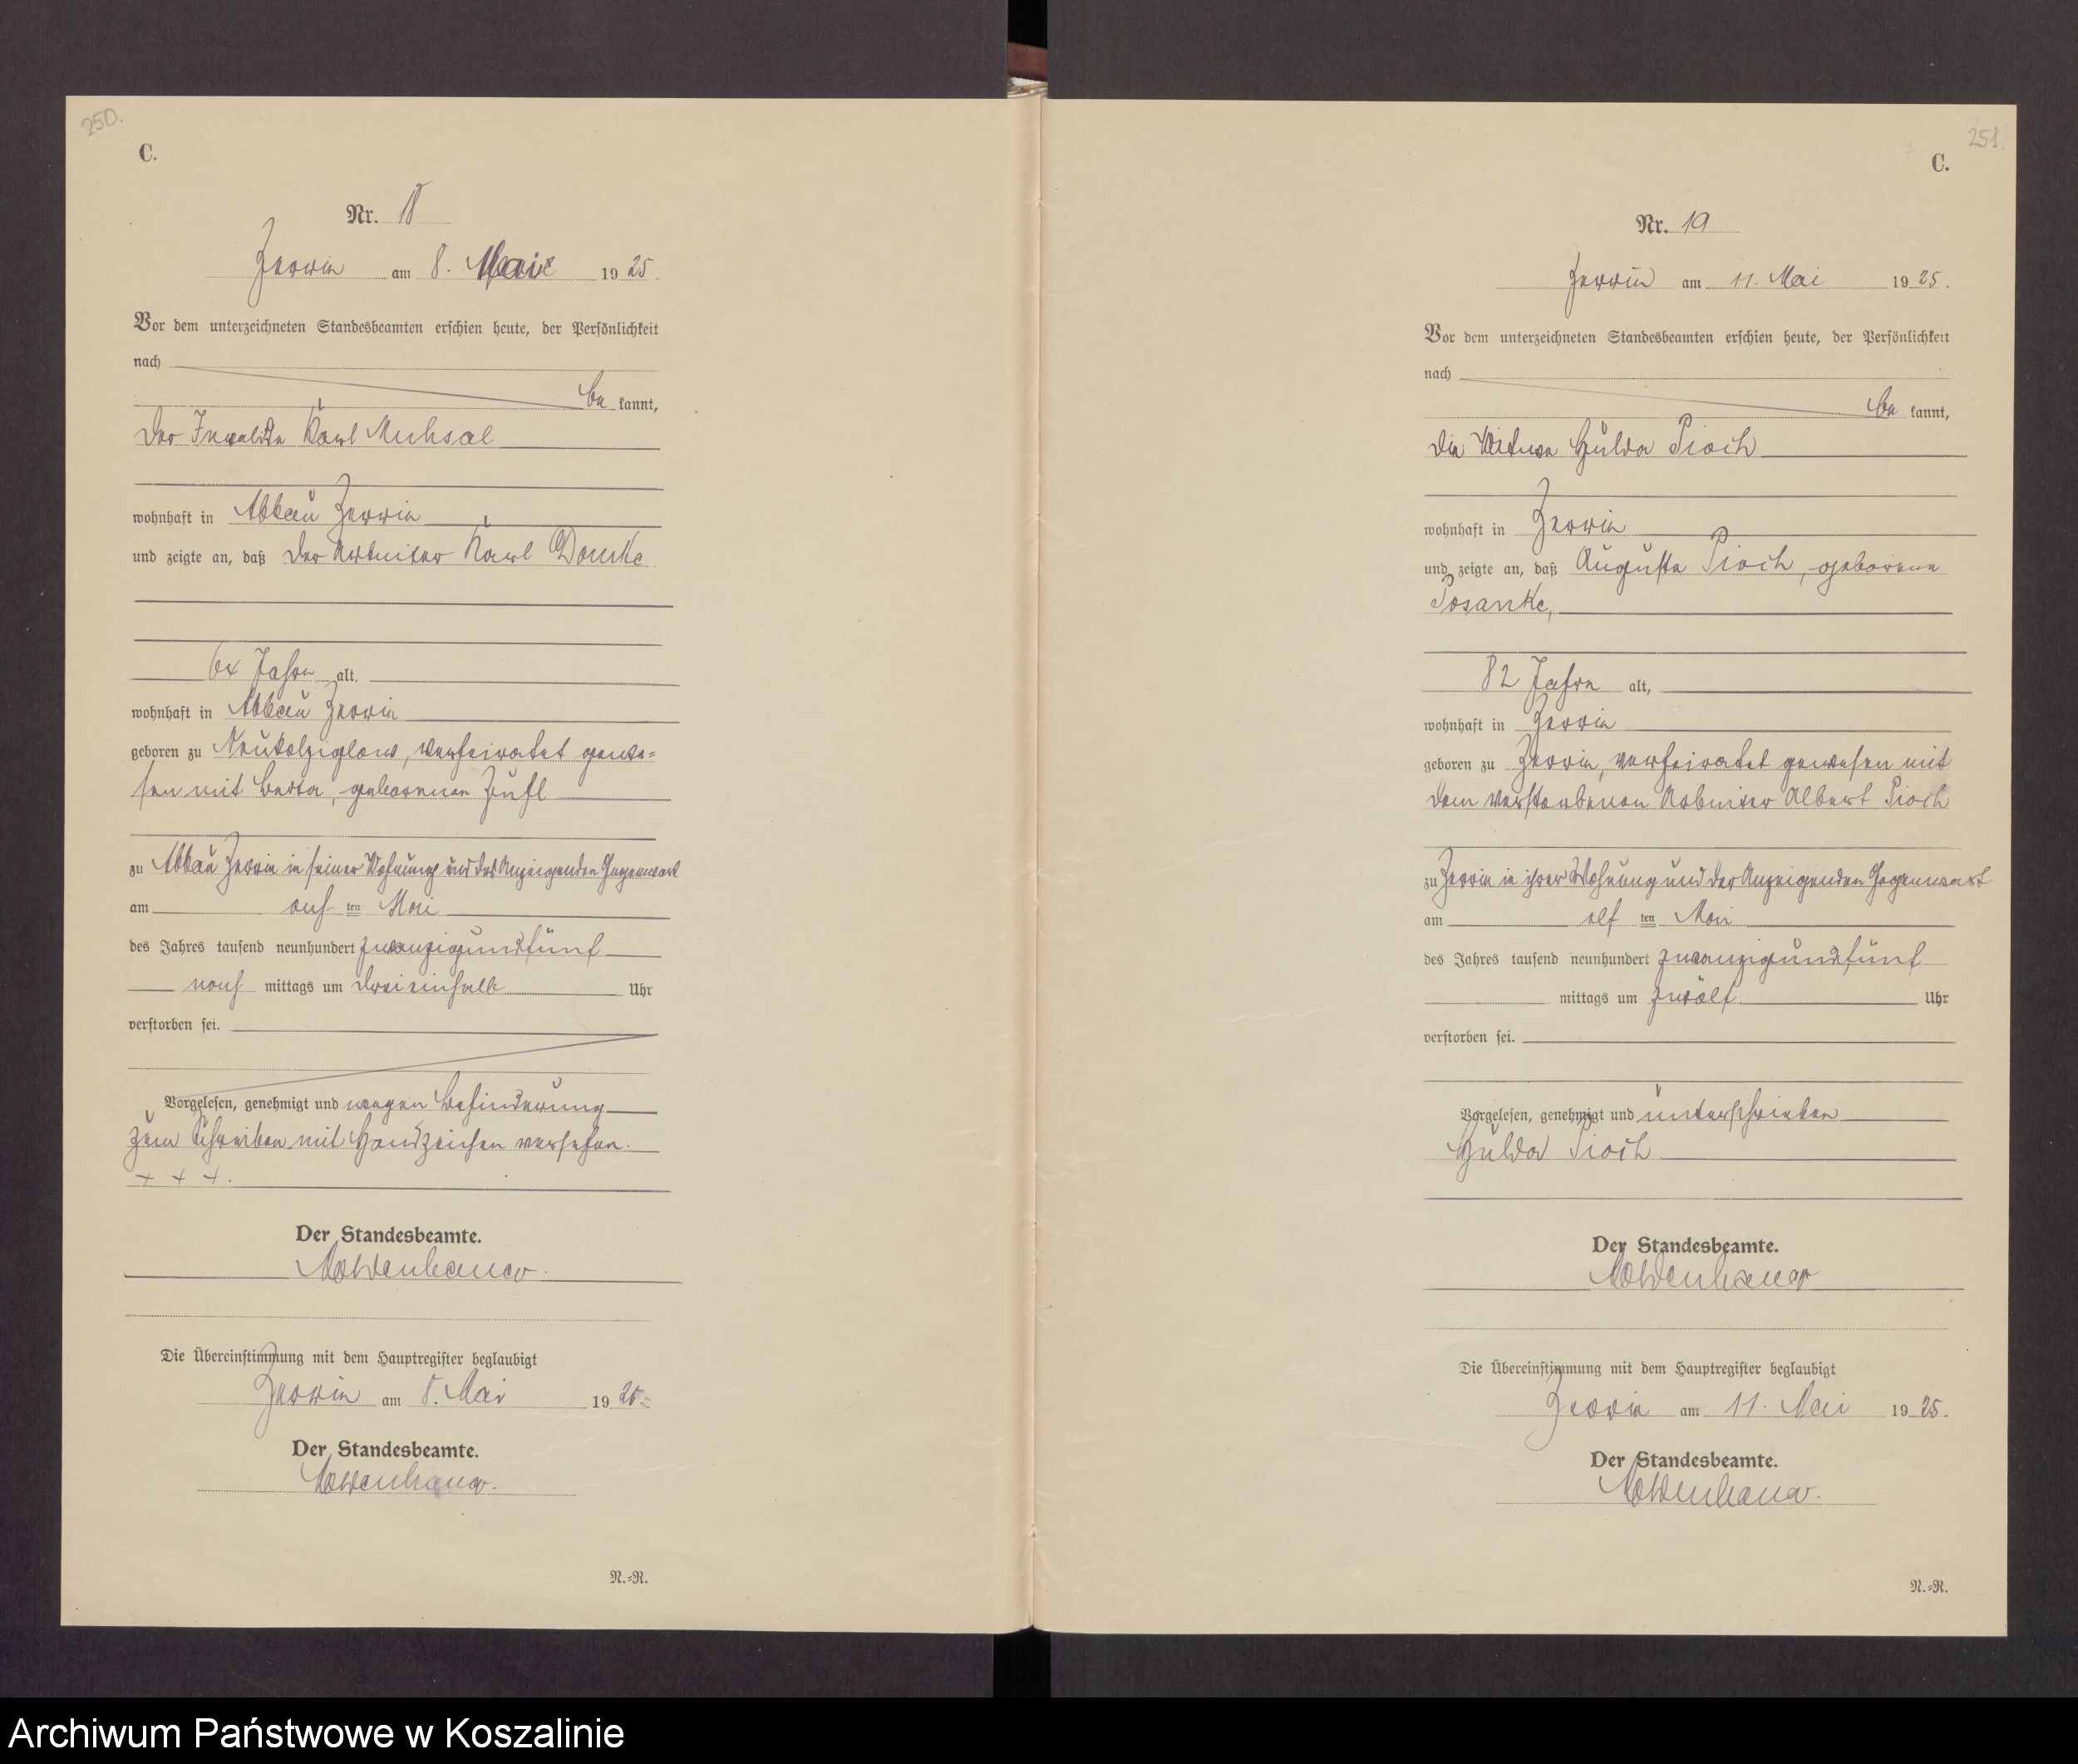 250.
C.
Nr. 18
Zerrin am 8. Mai 1925.
Vor dem unterzeichneten Standesbeamten erschien heute, der Persönlichkeit
nach
be kannt,
der Invalide Karl Muhsal
wohnhaft in Abbau Zerrin
und zeigte an, daß der Arbeiter Karl
Jahre alt.
wohnhaft in Abbau Zerrin
geboren zu Neukolziglow, verheiratet gewe-
sen mit Berta, geborenen
zu Abbau Zerrin in seiner Wohnung und des Anzeigenden Gegenwart
am acht ten Mai
des Jahres tausend neunhundert zwanzigundfünf
nach mittags um dreieinhalb Uhr
verstorben sei.
Vorgelesen, genehmigt und wegen Behinderung
zum Schreiben mit Handzeichen versehen.
+ + +.
Der Standesbeamte.
Moldenhauer.
Die Übereinstimmung mit dem Hauptregister beglaubigt
Zerrin am 8. Mai 1925.
Der Standesbeamte.
Moldenhauer.
N.=R.
251.
C.
Nr. 19
Zerrin am 11. Mai 1925.
Vor dem unterzeichneten Standesbeamten erschien heute, der Persönlichkeit
nach
be kannt,
die Witwe Hulda Pioch
wohnhaft in Zerrin
und zeigte an, daß Auguste Pioch, geborene
Posanke,
82 Jahre alt,
wohnhaft in Zerrin
geboren zu Zerrin, verheiratet gewesen mit
dem verstorbenen Arbeiter Albert Pioch
zu Zerrin in ihrer Wohnung und der Anzeigenden Gegenwart
am elf ten Mai
des Jahres tausend neunhundert zwanzigundfünf
mittags um zwölf Uhr
verstorben sei.
Vorgelesen, genehmigt und unterschrieben
Hulda Pioch
Der Standesbeamte.
Moldenhauer
Die Übereinstimmung mit dem Hauptregister beglaubigt
Zerrin am 11. Mai 1925.
Der Standesbeamte.
Moldenhauer.
N.=R.
Archiwum Państwowe w Koszalinie